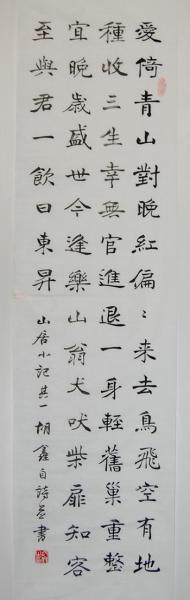 愛倚青山對晚紅偏〻來去鳥飛空有地
種收三生幸無官進退一身輕舊巢重整
宜晚歲盛世今逢樂山翁犬吠柴扉知客
至與君一飲日東昇
山居小記其一胡鑫自詩并書